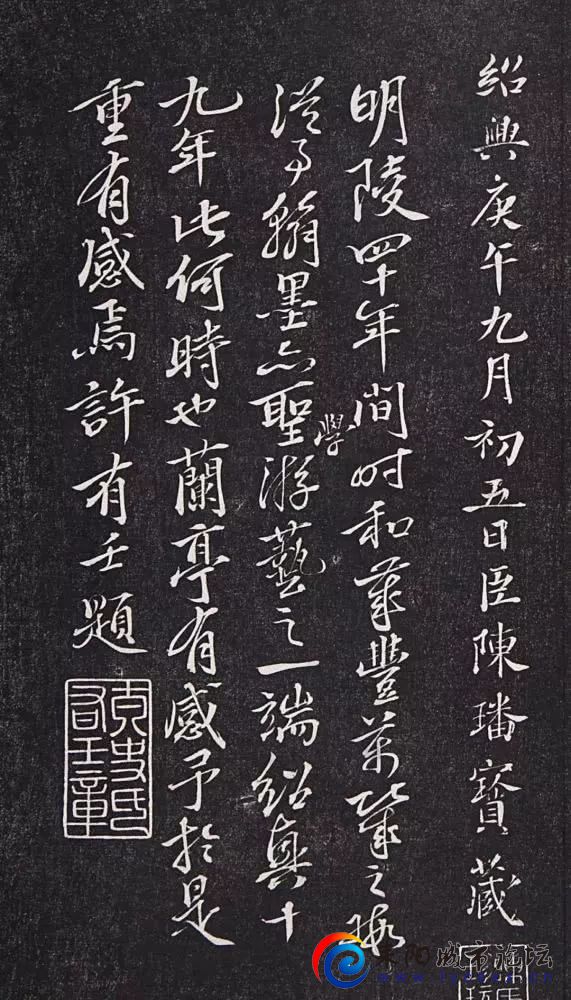 紹興庚午九月初五日臣陳璠寶藏
明陵四十年間时和歲豐萬幾之暇
從事翰墨亦聖學游藝之一端紹興十
九年此何時也蘭亭有感予於是
重有感焉許有壬題
阳城市论坛